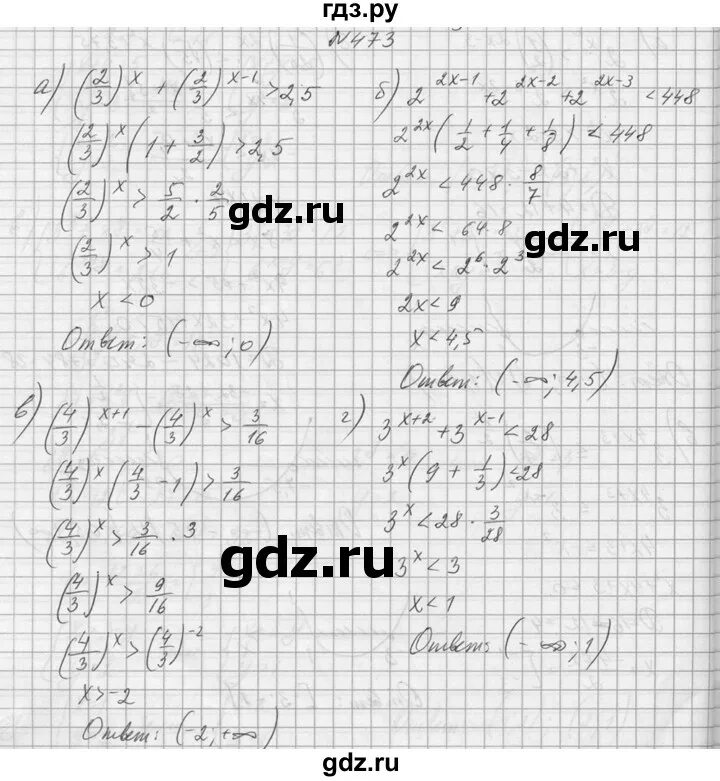 гдз.ру
N 473
а) (2/3)^x + (2/3)^(x-1) > 2,5
(2/3)^x (1 + 3/2) > 2,5
(2/3)^x > 5/2 · 2/5
(2/3)^x > 1
x < 0
Ответ: (-∞; 0)
б) 2^(2x-1) + 2^(2x-2) + 2^(2x-3) < 448
2^(2x) (1/2 + 1/4 + 1/8) < 448
2^(2x) < 448 · 8/7
2^(2x) < 64·8
2^(2x) < 2^6 · 2^3
2x < 9
x < 4,5
Ответ: (-∞; 4,5)
в) (4/3)^(x+1) - (4/3)^x > 3/16
(4/3)^x (4/3 - 1) > 3/16
(4/3)^x > 3/16 · 3
(4/3)^x > 9/16
(4/3)^x > (4/3)^(-2)
x > -2
Ответ: (-2; +∞)
г) 3^(x+2) + 3^(x-1) < 28
3^x (9 + 1/3) < 28
3^x < 28 · 3/28
3^x < 3
x < 1
Ответ: (-∞; 1)
gdz.ru
gdz.ru
gdz.ru
gdz.ru